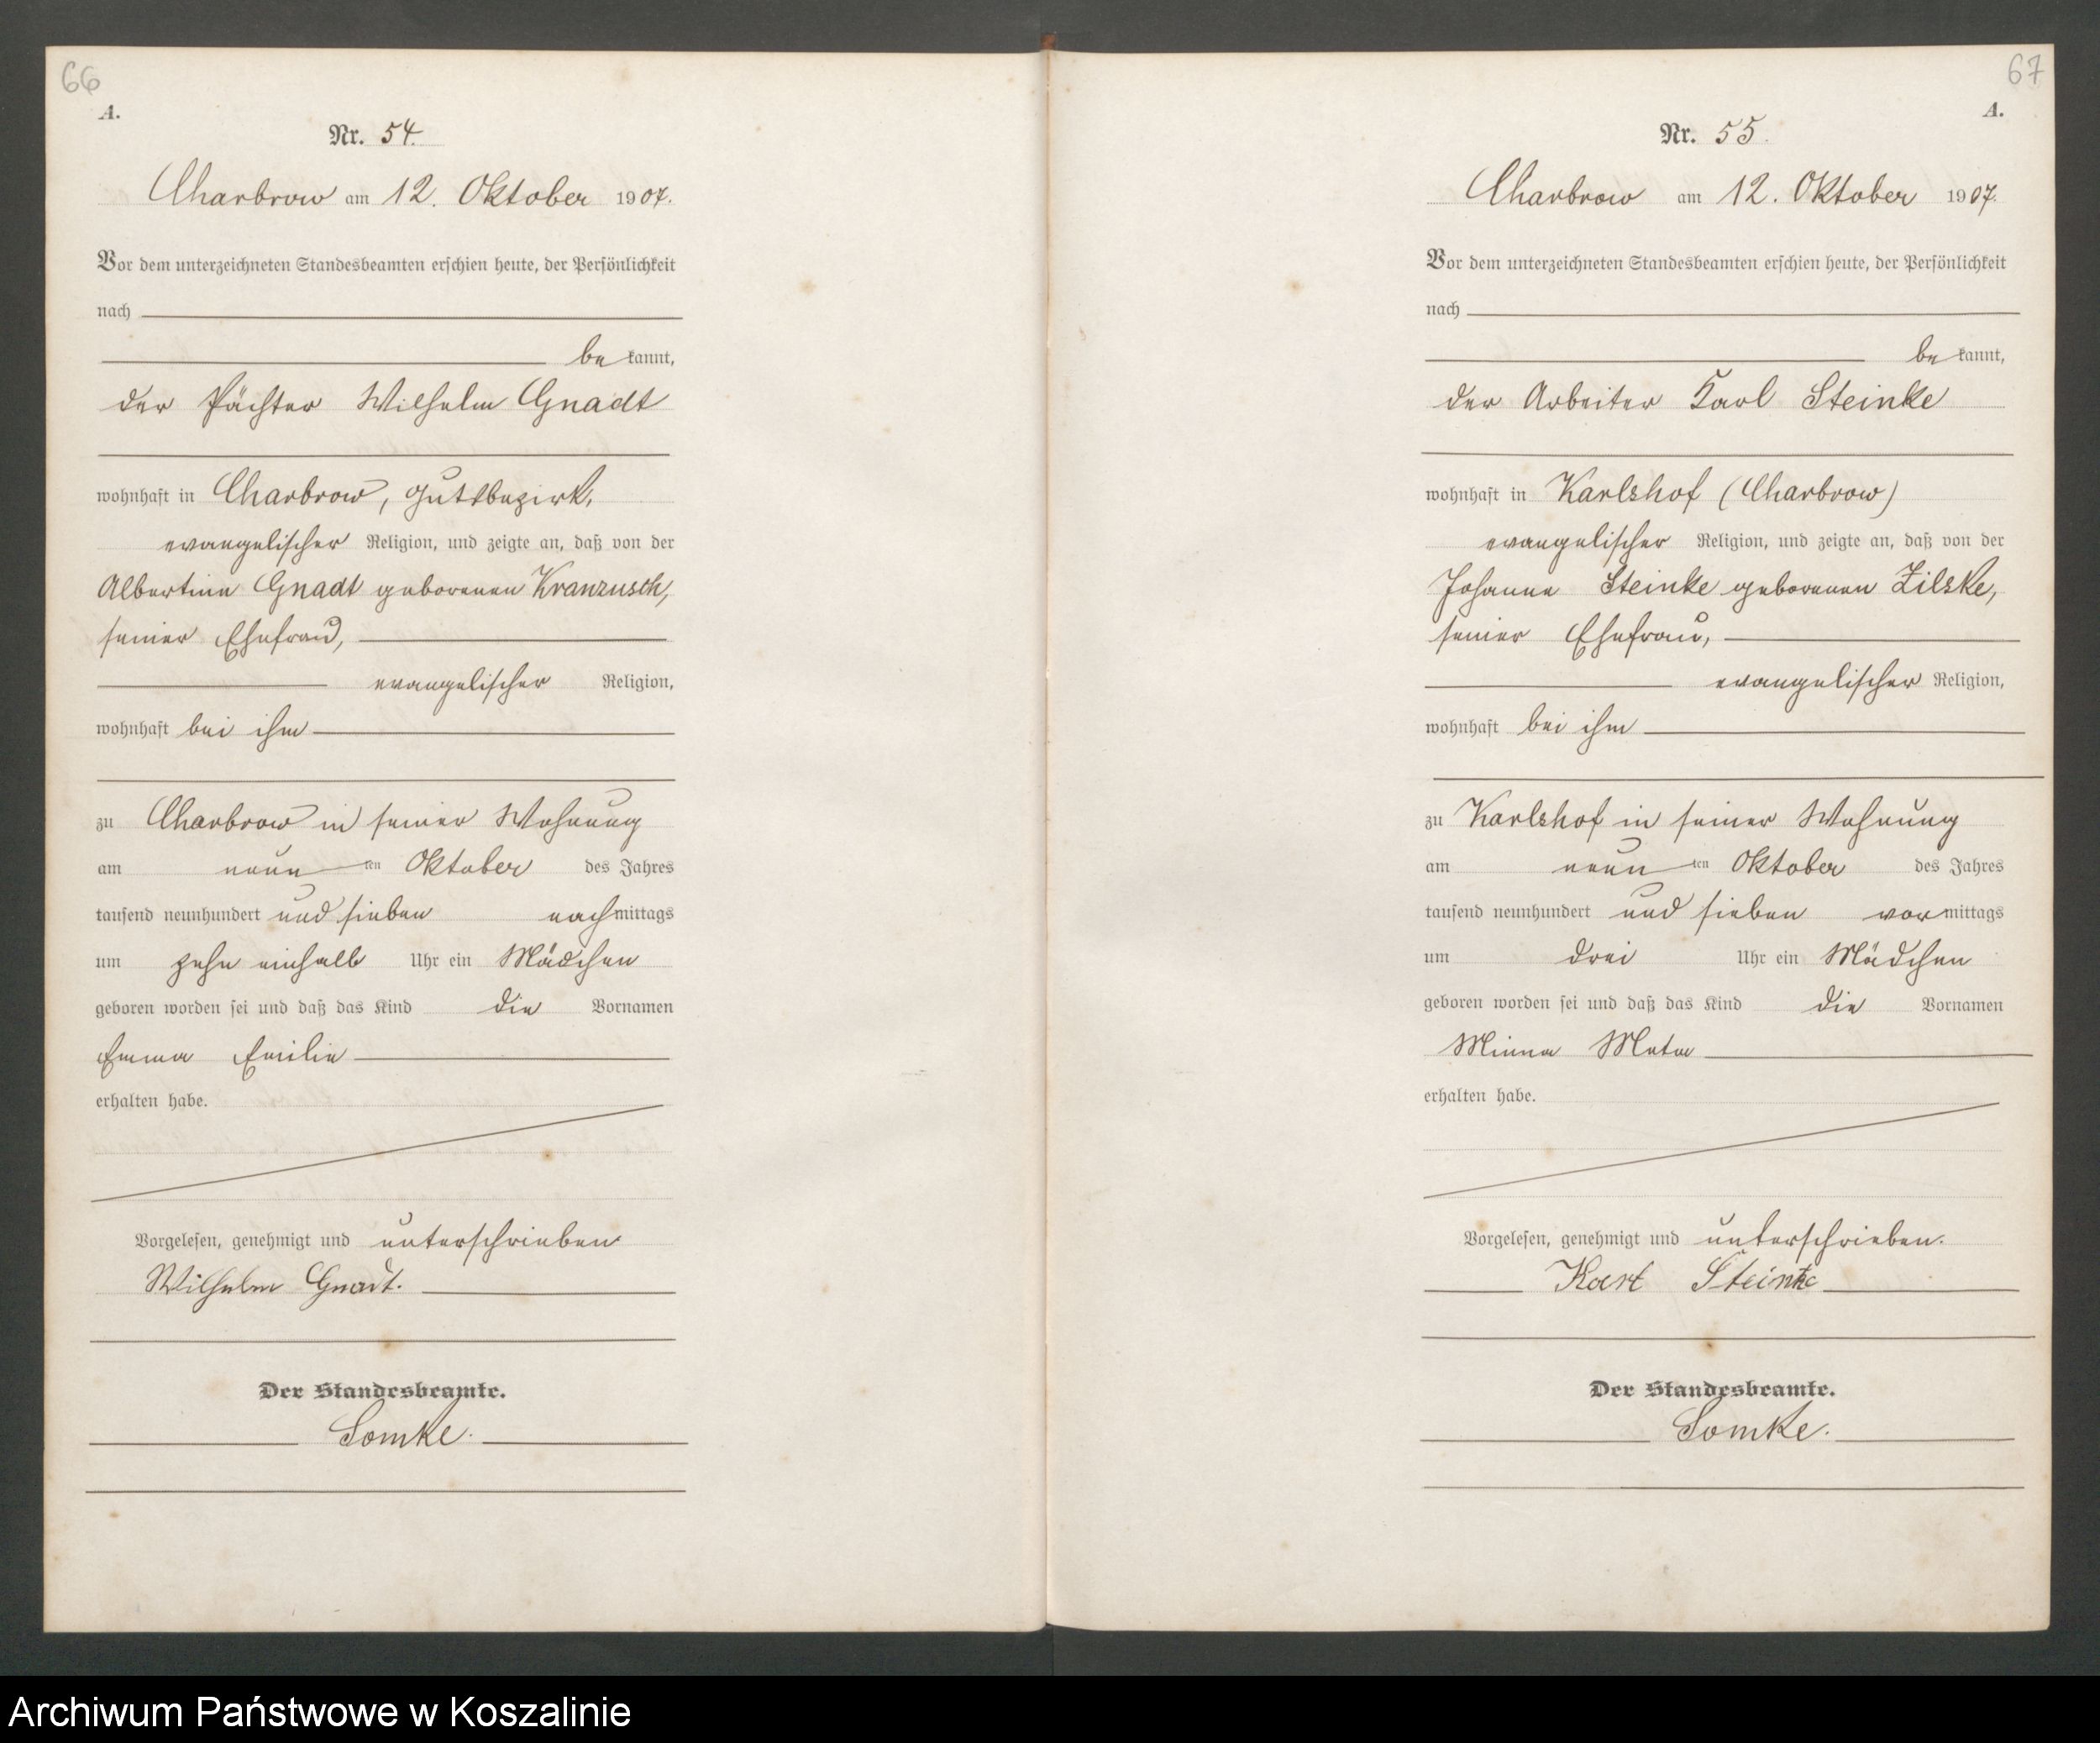 66
A.
Nr. 54.
Charbrow am 12. Oktober 1907.
Vor dem unterzeichneten Standesbeamten erschien heute, der Persönlichkeit
nach
be kannt,
der Pächter Wilhelm Gnadt
wohnhaft in Charbrow, Gutsbezirk,
evangelischer Religion, und zeigte an, daß von der
Albertine Gnadt geborenen Kranzusch,
seiner Ehefrau,
evangelischer Religion,
wohnhaft bei ihm
zu Charbrow in seiner Wohnung
am neun ten Oktober des Jahres
tausend neunhundert und sieben nachmittags
um zehn einhalb Uhr ein Mädchen
geboren worden sei und daß das Kind die Vornamen
Emma Emilie
erhalten habe.
Vorgelesen, genehmigt und unterschrieben
Wilhelm Gnadt.
Der Standesbeamte.
Somke.
67
A.
Nr. 55.
Charbrow am 12. Oktober 1907.
Vor dem unterzeichneten Standesbeamten erschien heute, der Persönlichkeit
nach
be kannt,
der Arbeiter Karl Steinke
wohnhaft in Karlshof (Charbrow)
evangelischer Religion, und zeigte an, daß von der
Johanne Steinke geborenen Zilske,
seiner Ehefrau,
evangelischer Religion,
wohnhaft bei ihm
zu Karlshof in seiner Wohnung
am neun ten Oktober des Jahres
tausend neunhundert und sieben vormittags
um drei Uhr ein Mädchen
geboren worden sei und daß das Kind die Vornamen
Minna Meta
erhalten habe.
Vorgelesen, genehmigt und unterschrieben.
Karl Steinke
Der Standesbeamte.
Somke.
Archiwum Państwowe w Koszalinie